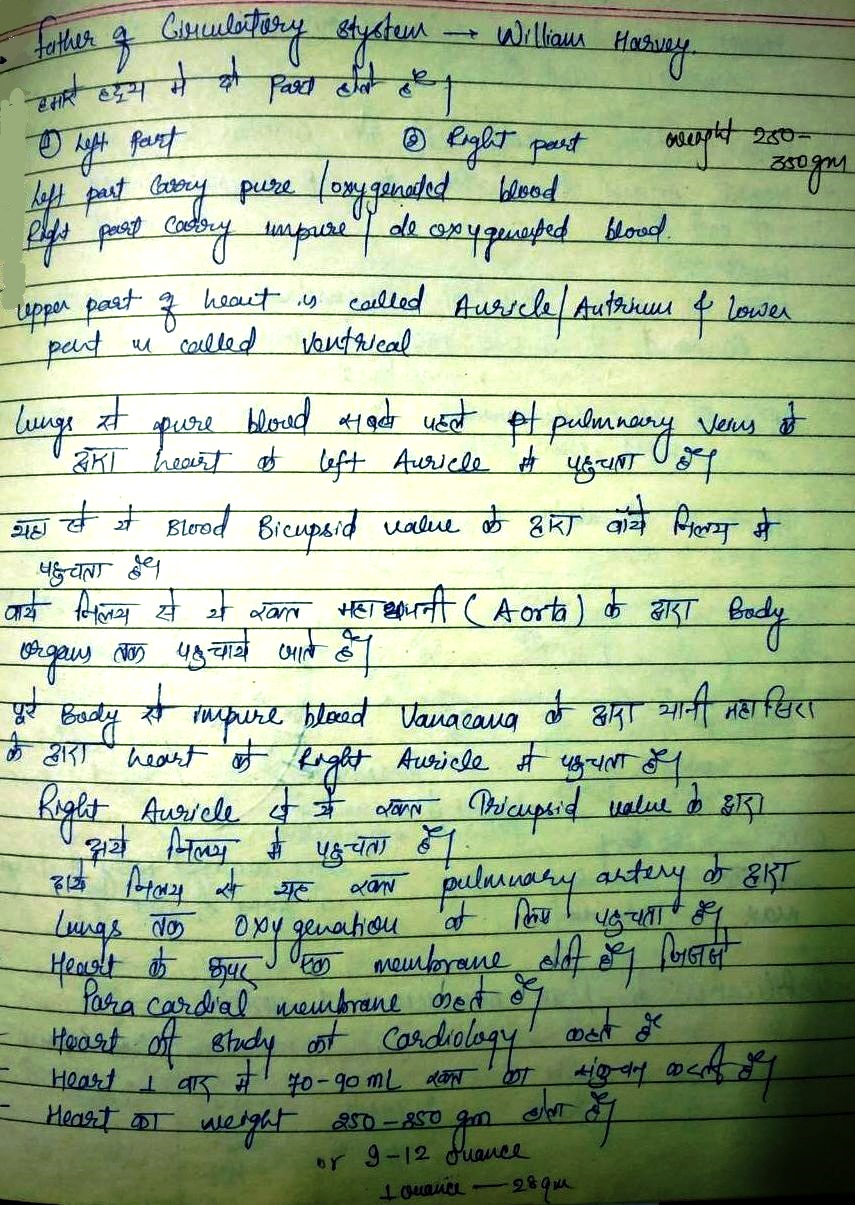 father of Circulatory system → William Harvey.
हमारे हृदय मे दो Part होते हैं।
① Left Part ② Right part weight 250-
350gm
Left part Carry pure /oxygenated blood
Right part Carry impure / de oxygenated blood.
Upper part of heart is called Auricle/Autrium & Lower
part is called Ventrical
Lungs से pure blood सबसे पहले pulmnary Veins के
द्वारा heart के left Auricle में पहुचता हैं।
यहा से ये Blood Bicupsid value के द्वारा बाँये निलय मे
पहुचता हैं।
बाये निलय से ये रक्त महाधमनी (Aorta) के द्वारा Body
Organs तक पहुचाये जाते हैं।
पूरे Body से impure blood Vanacava के द्वारा यानी महाशिरा
के द्वारा heart के Right Auricle में पहुचता हैं।
Right Auricle से ये रक्त Tricupsid value के द्वारा
दाये निलय में पहुचता हैं।
दाये निलय से यह रक्त pulmnary artery के द्वारा
Lungs तक Oxygenation के लिए पहुचता हैं।
Heart के ऊपर एक membrane होती हैं। जिसे
Para cardial membrane कहते हैं।
Heart की study को Cardiology कहते हैं
Heart 1 बार में 70-90mL रक्त का संकुचन करती हैं।
Heart का weight 250-350 gm होता हैं।
or 9-12 Ounce
1 ounce — 28gm